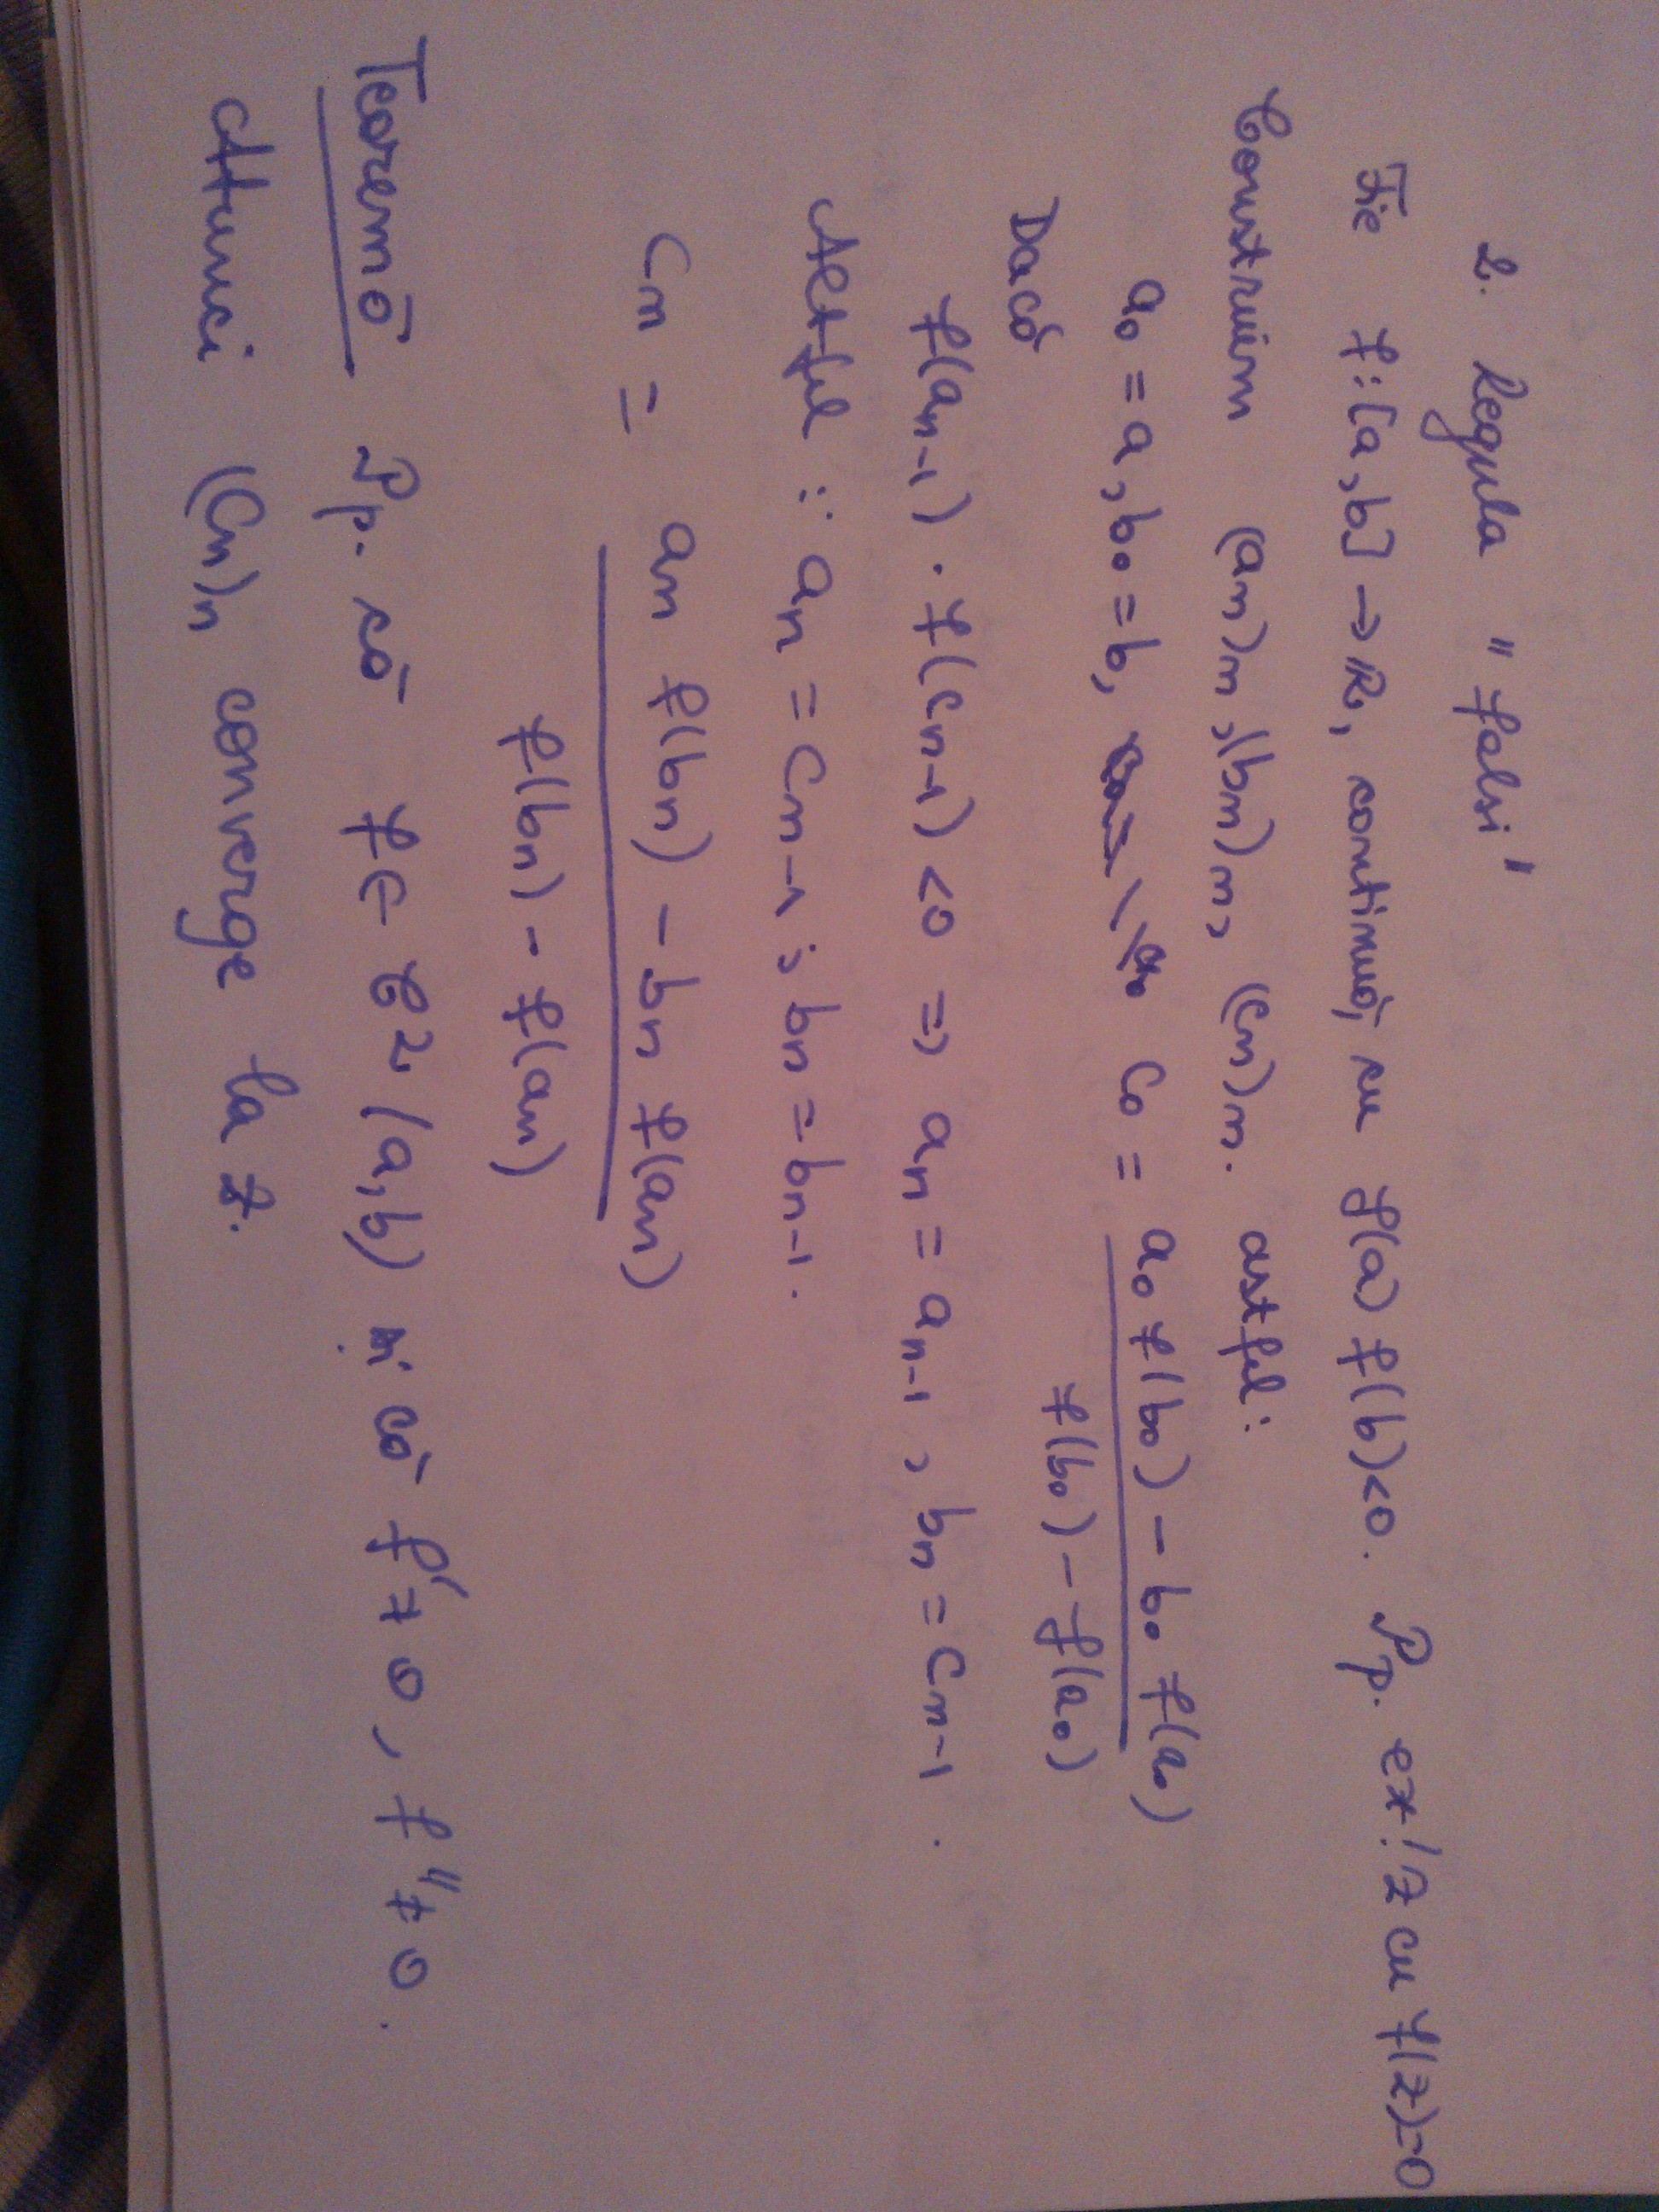 2. Regula "falsi"
Fie f:[a,b]→R, continuă, cu f(a) f(b)<0. Pp. ex! z cu f(z)=0
Construim (an)n, (bn)n, (cn)n. astfel:
a0 = a, b0 = b, c0 = (a0 f(b0) - b0 f(a0)) / (f(b0) - f(a0))
Dacă
f(an-1) · f(cn-1) <0 => an = an-1 , bn = cn-1 .
Altfel : an = cn-1 ; bn = bn-1 .
cn = (an f(bn) - bn f(an)) / (f(bn) - f(an))
Teoremă Pp. că f ∈ C2 (a,b) și că f' ≠ 0, f'' ≠ 0.
Atunci (cn)n converge la z.